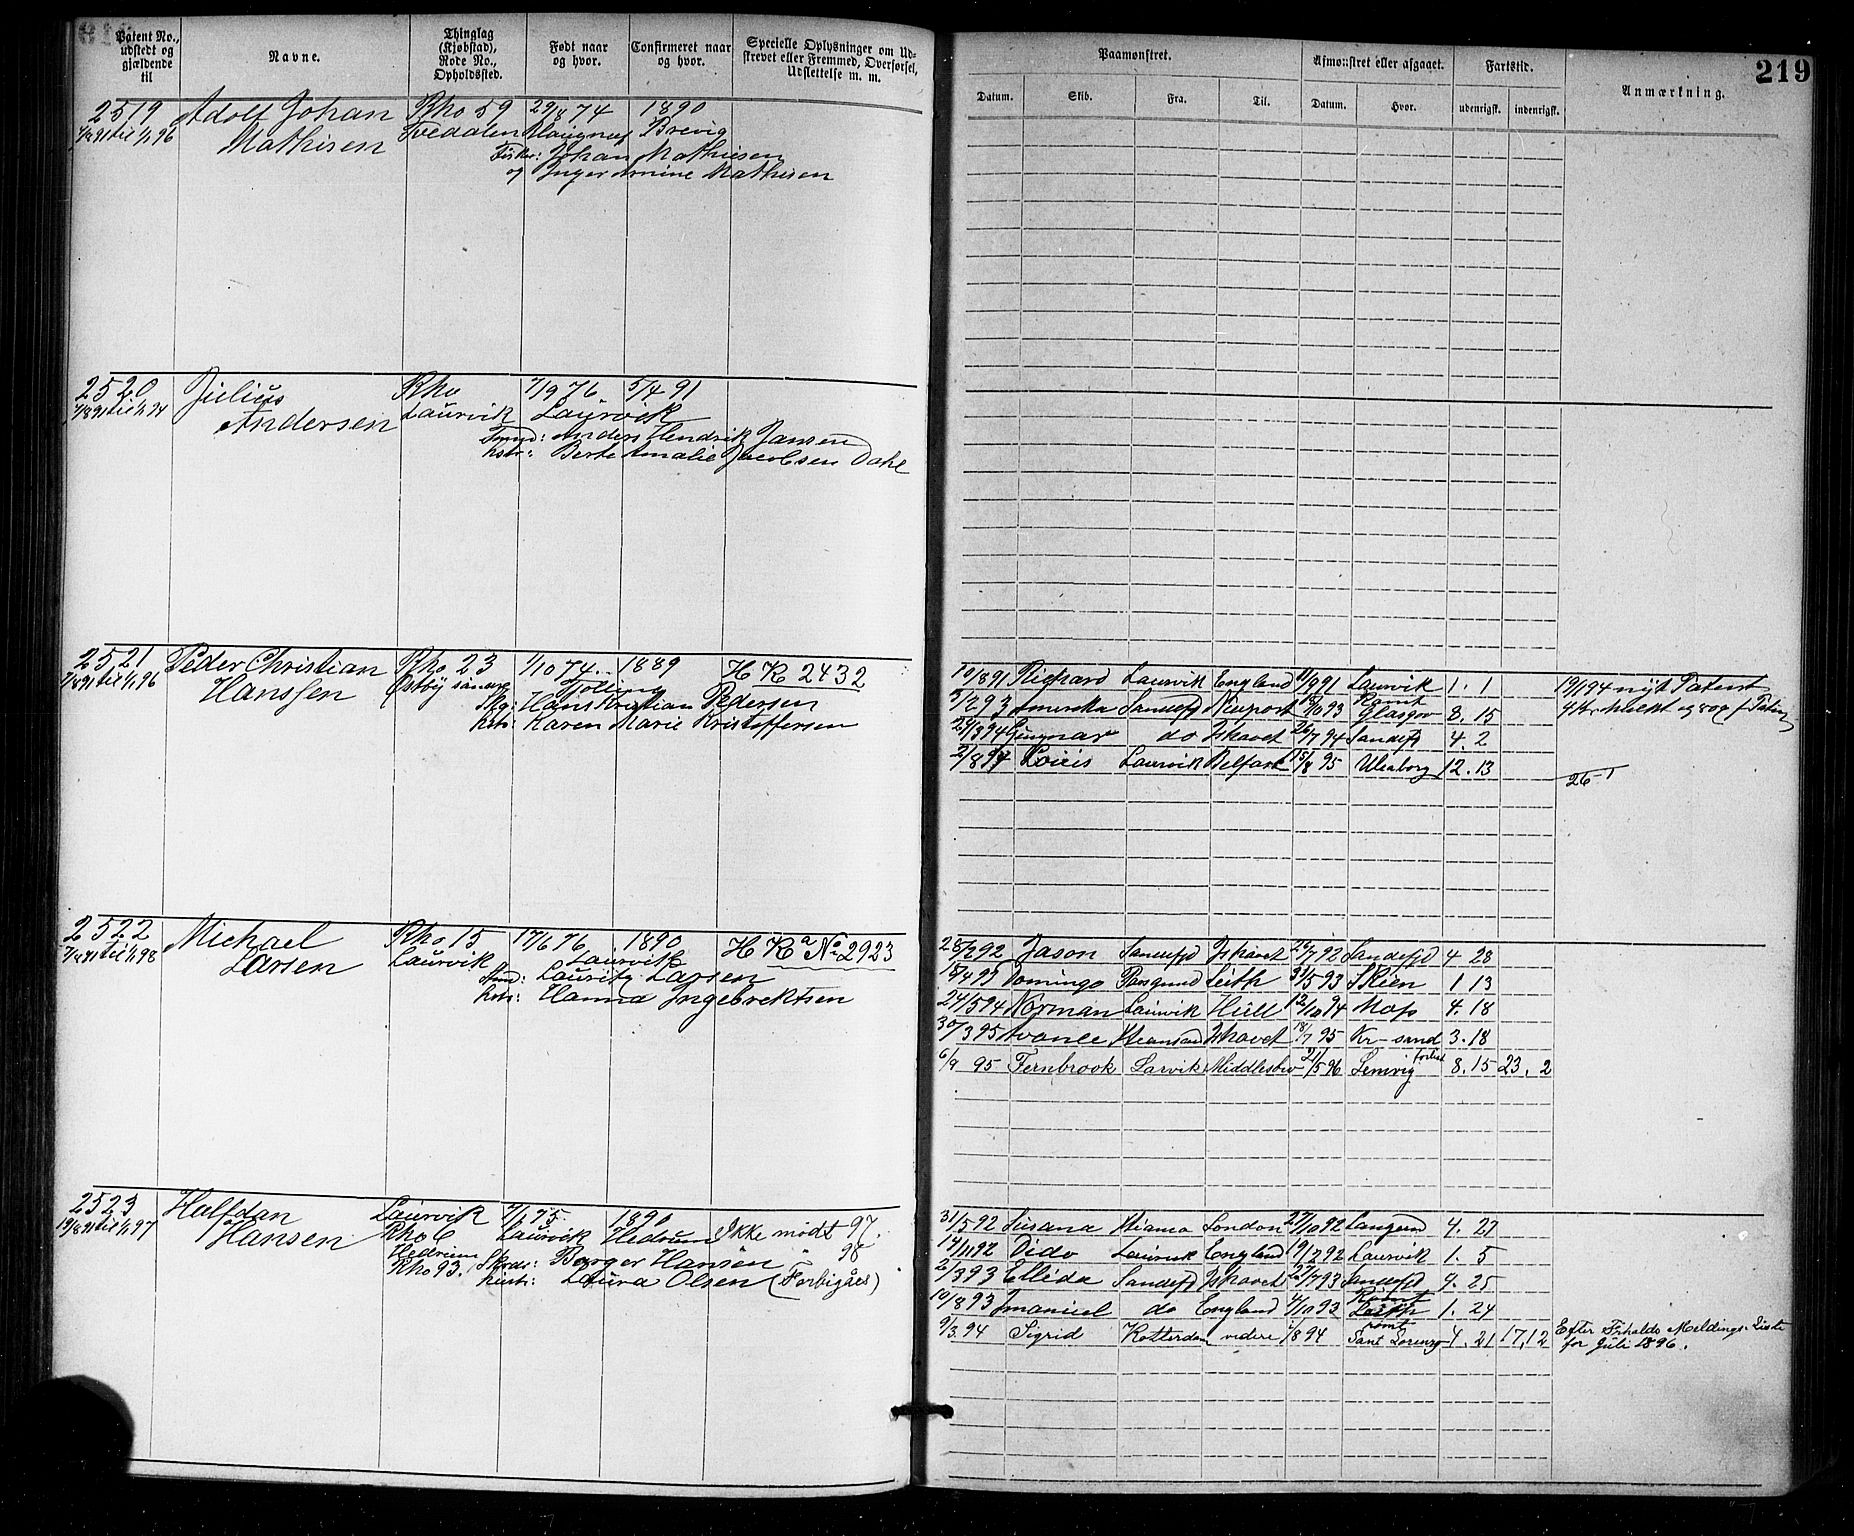 219
Patent No., udstedt og gjældende til
Navne.
Thinglag (Kjøbstad), Rode No., Opholdssted.
Født naar og hvor.
Confirmeret naar og hvor.
Specielle Oplysninger om Udskrevet eller Fremmed, Overførsel, Udslettelse m. m.
Paamønstret.
Afmønstret eller afgaaet.
Fartstid.
Anmærkning.
Datum.
Skib.
Fra.
Til.
Datum.
Hvor.
udenrigsk.
indenrigsk.
2519 Adolf Johan Rho 59 29/8 74 1890
til 1/1 96 Mathisen Tvedalen Brevig
Fisker: Johan Mathisen
og Inger Mathisen
2520 Julius Rho 7/9 76 5/4 91
7/8 91 til 1/1 94 Andersen Laurvik Laurvik
Anders Hendrik Jansen
hstr: Berte Amalie Jacobsen Dahl
2521 Peder Christian Rho 23 1/10 74 1889 H R 2432
7/8 91 til 1/1 96 Hanssen Østby Tjølling
Hans Kristian Pedersen
hstr: Karen Marie Kristoffersen
10/8 91 Richard Laurvik England 11/9 91 Laurvik 1. 1 19/1 94 nyt Patent
2/2 93 Amerika Sandefj Newport /10 93 Rømt Glasgow 8. 15
2/3 94 Gungnar do Ishavet 26/7 94 Sandefj 4. 2
2/8 94 Louis Laurvik Belfast 15/8 95 Uleaborg 12. 13
26-1
2522 Michael Rho 15 17/6 76 1890 H Ra No 2923
til 1/1 98 Larsen Laurvik Laurvik
Lauritz Larsen
hstr: Hanna Ingebrektsen
28/2 92 Jason Sandefjd Ishavet 26/7 92 Sandefjd 4 28
18/4 93 Domingo Porsgrund Leith 31/5 93 Skien 1 13
24/5 94 Norman Laurvik Hull 12/10 94 Moss 4. 18
30/3 95 Ishavet 18/7 95 Kr-sand 3. 18
6/9 95 Fernbrook Larvik Middlesbro 21/5 96 Lemvig forlist 8. 15 23. 2
2523 Halfdan Laurvik 7/1 75 1890 Ikke mødt 97.
19/8 91 til 1/1 97 Hansen Rho 6 Laurvik Hedrum " 98
Hedrum Borger Hansen
Rho 93. hustr: Laura Olsen (Forbigåes)
31/5 92 Susana London 27/10 92 Langesund 4. 27
14/11 92 Dido Laurvik England 19/12 92 Laurvik 1. 5
2/3 93 Ellida Sandefjd Ishavet 27/7 93 Sandefjd 4. 25
10/8 93 Imanuel do England 4/10 93 Rømt Leith 1. 24
9/3 94 Sigrid Rotterdam videre 1/8 94 rømt Sant Lorenzo 4. 21 17. 12 Efter Friholds Meldings-Liste
for Juli 1896.